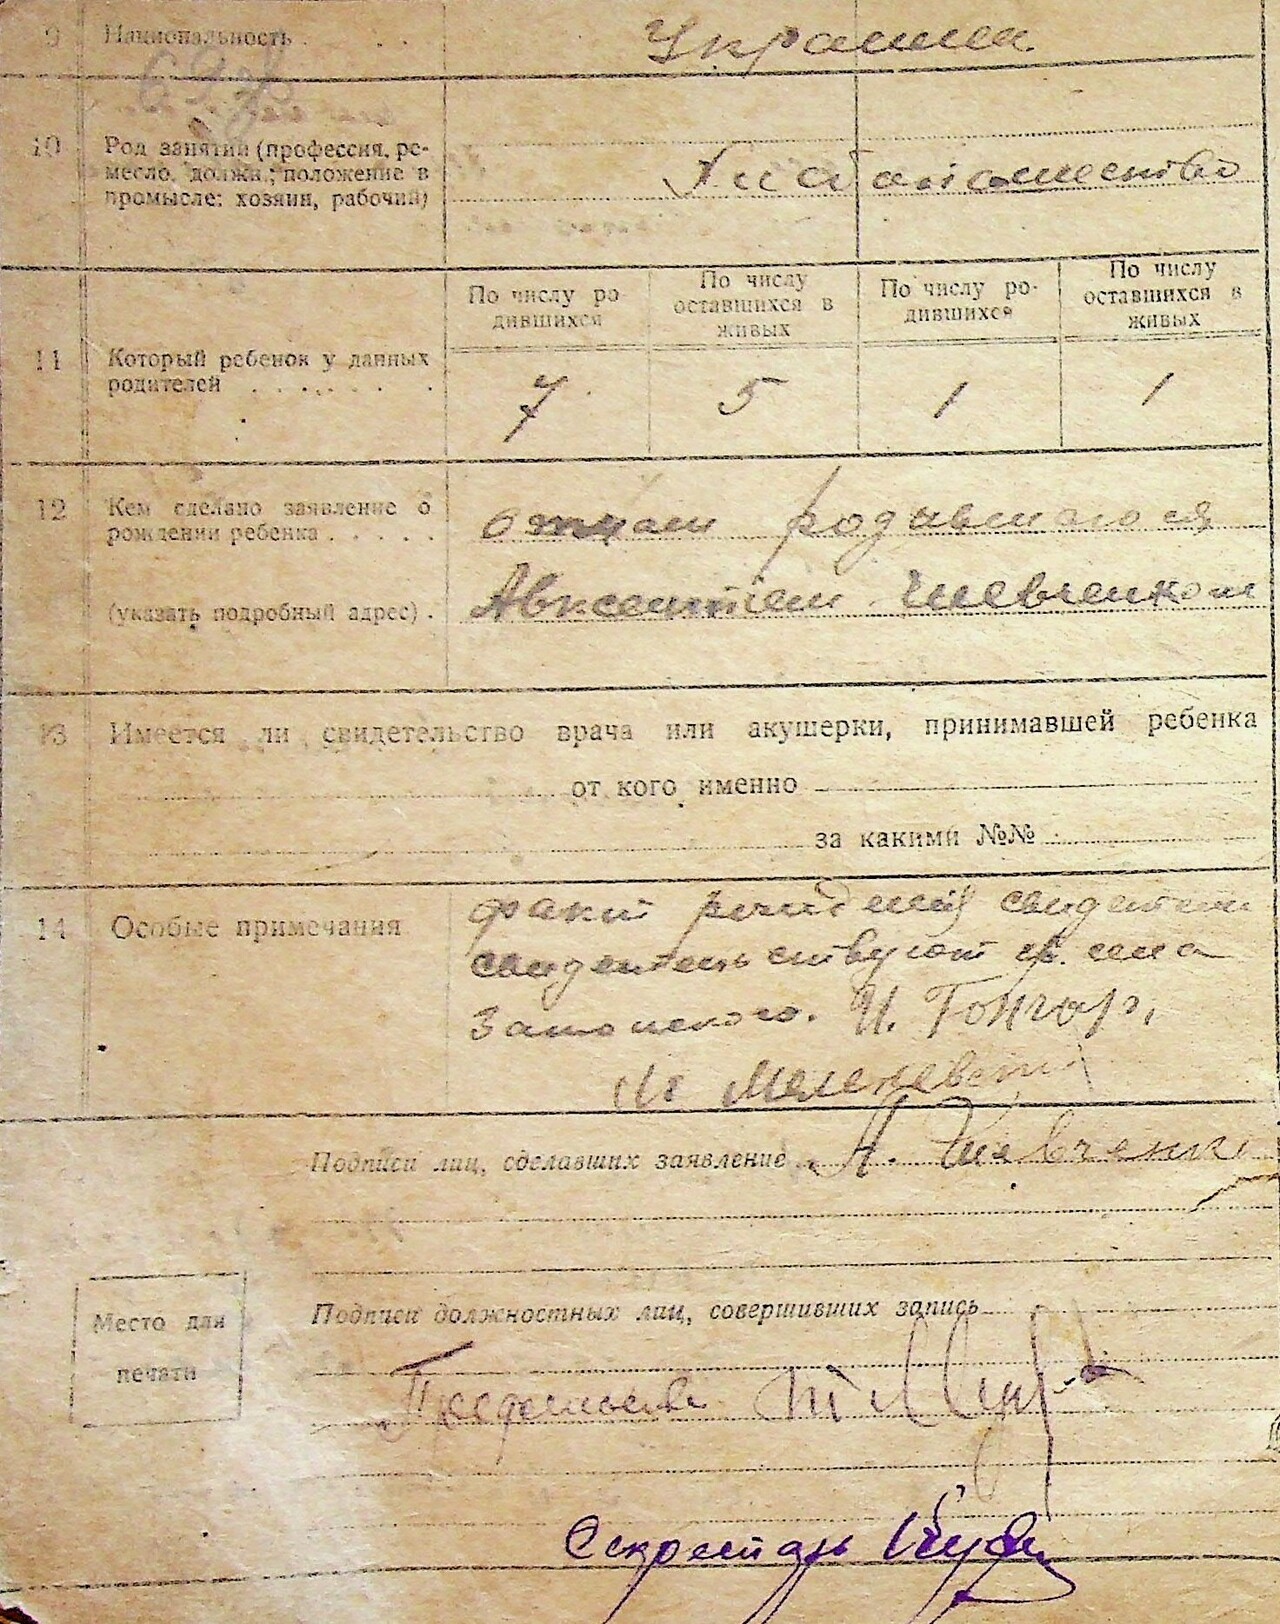 9 Национальность . . . Украинец
10 Род занятий (профессия, ре-
месло, должн.; положение в
промысле: хозяин, рабочий)
Хлебопашество
По числу ро
дившихся
По числу
оставшихся в
живых
По числу ро-
дившихся
По числу
оставшихся в
живых
11 Который ребенок у данных
родителей . . . . . . .
7 5 1 1
12 Кем сделано заявление о
рождении ребенка . . . . .
(указать подробный адрес) .
отцом родившегося
Авксентием Шевченком
13 Имеется ли свидетельство врача или акушерки, принимавшей ребенка
от кого именно
за какими №№
14 Особые примечания
факт рождения свидетели
свидетельствуют гр. села
Затонского. И. Гончар,
Подписи лиц, сделавших заявление А. Шевченко
Подписи должностных лиц, совершивших запись
Место для
печати
Председатель
Секретарь